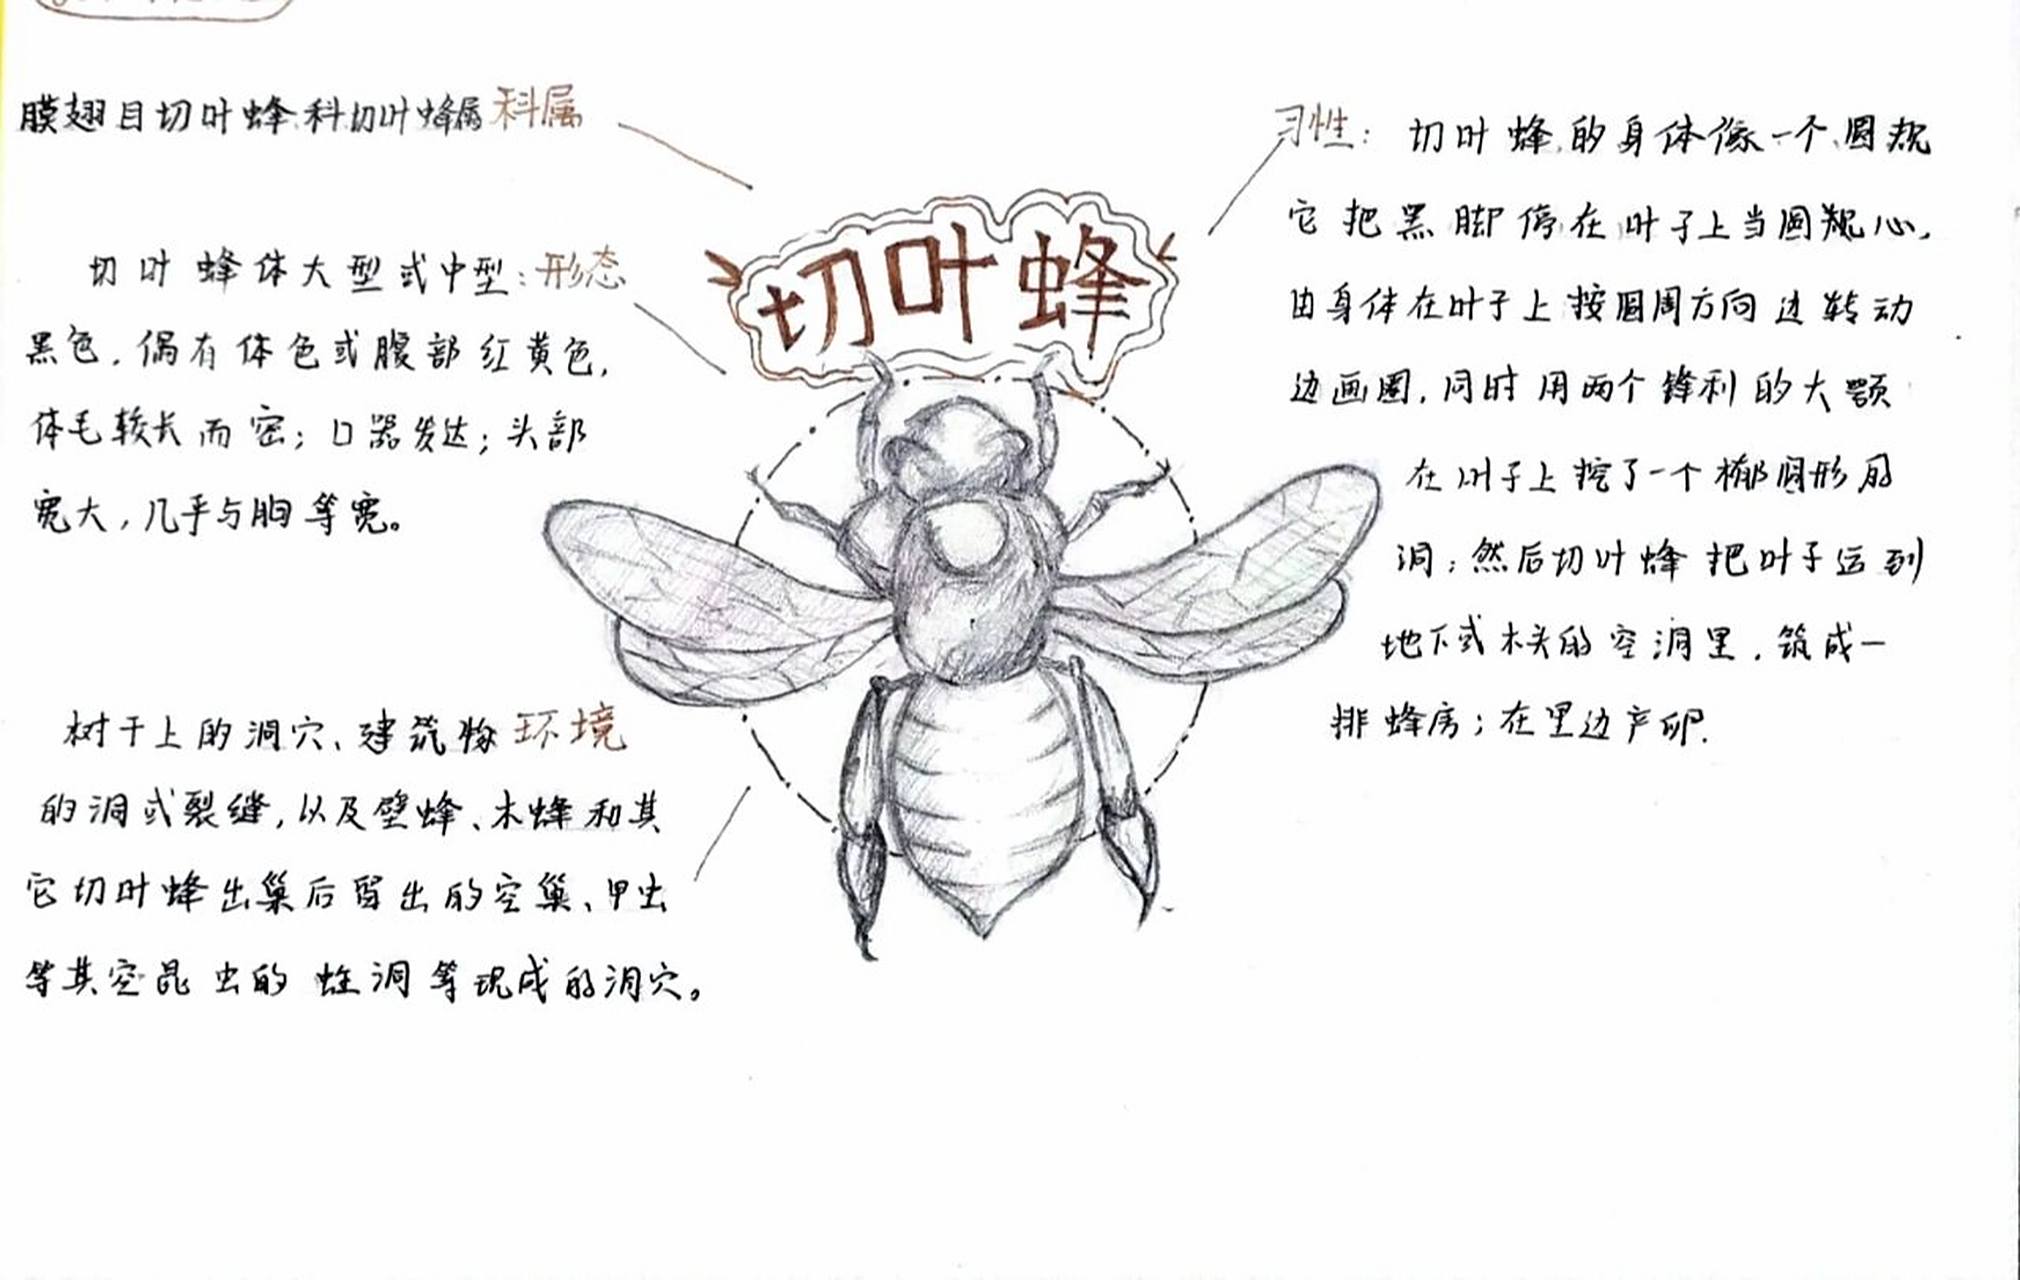 膜翅目切叶蜂科切叶蜂属 科属
切叶蜂体大型或中型：形态
黑色，偶有体色或腹部红黄色，
体毛较长而密；口器发达；头部
宽大，几乎与胸等宽。
树干上的洞穴、建筑物 环境
的洞或裂缝，以及壁蜂、木蜂和其
它切叶蜂出巢后留出的空巢、甲虫
等其空昆虫的蛀洞等现成的洞穴。
切叶蜂
习性：切叶蜂的身体像一个圆规
它把黑脚停在叶子上当圆规心，
由身体在叶子上按圆周方向边转动
边画圈，同时用两个锋利的大颚
在叶子上挖了一个椭圆形的
洞；然后切叶蜂把叶子运到
地下或木头的空洞里，筑成一
排蜂房；在里边产卵.